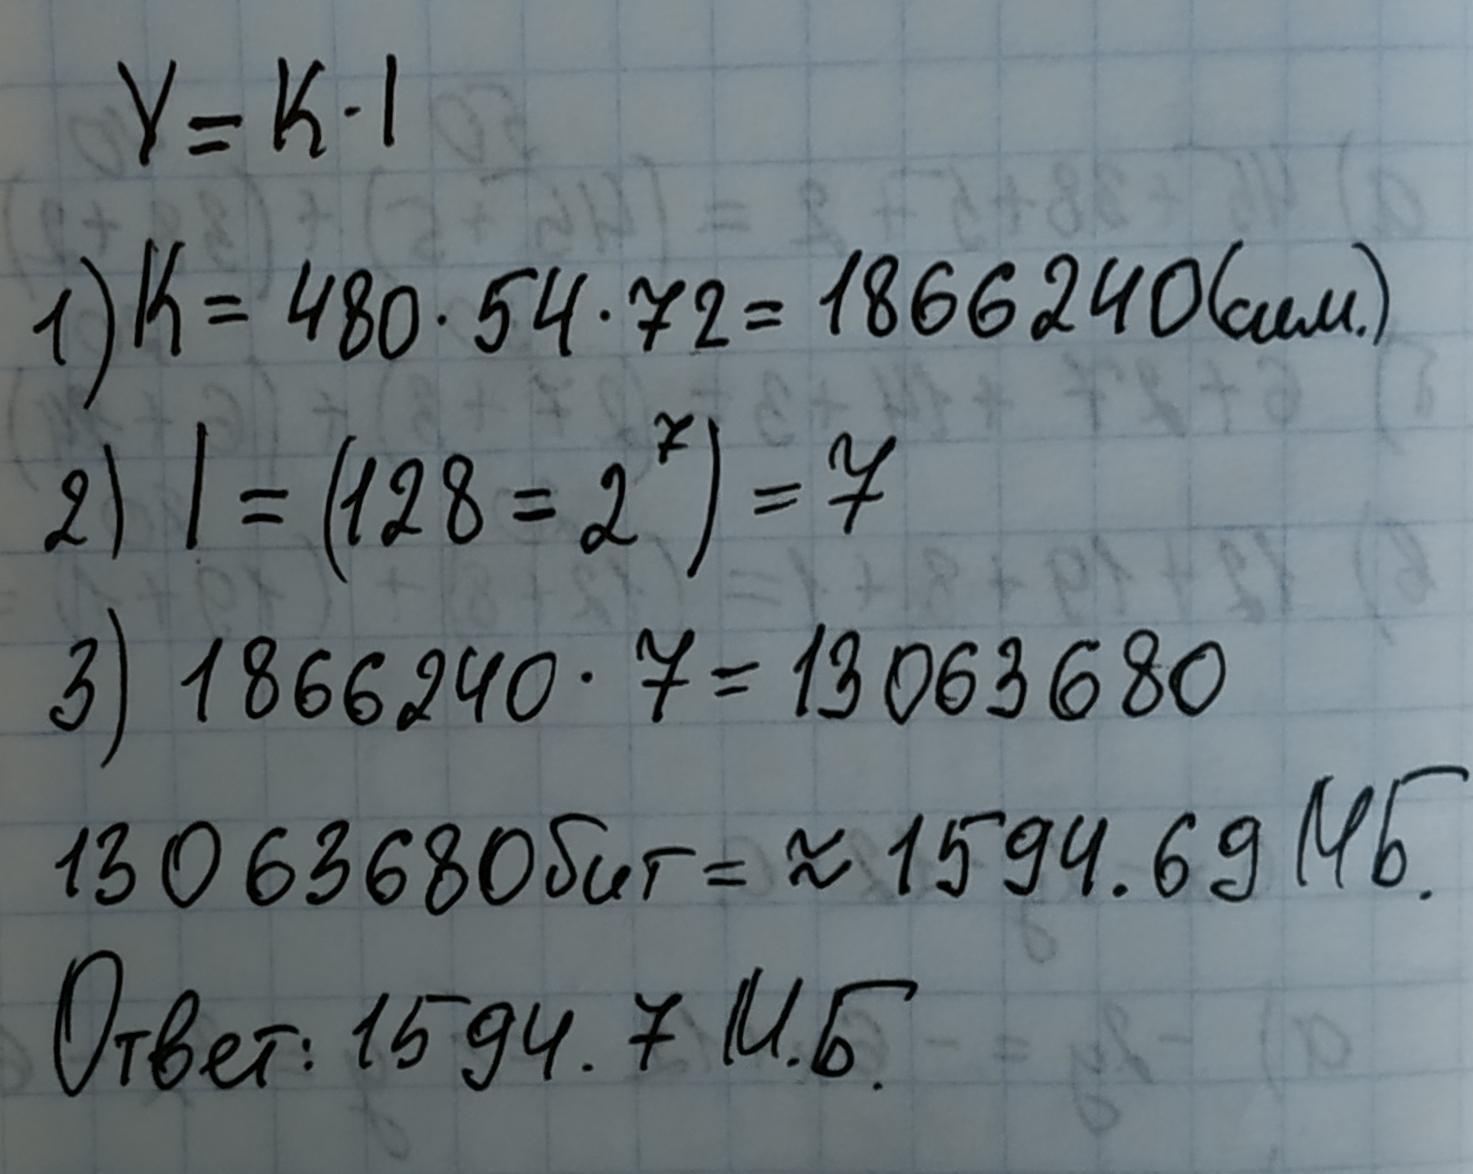 V = K · I
1) K = 480 · 54 · 72 = 1866240 (сим.)
2) I = (128 = 2⁷) = 7
3) 1866240 · 7 = 13063680
13063680 бит = ≈ 1594.69 МБ.
Ответ: 1594.7 М.Б.